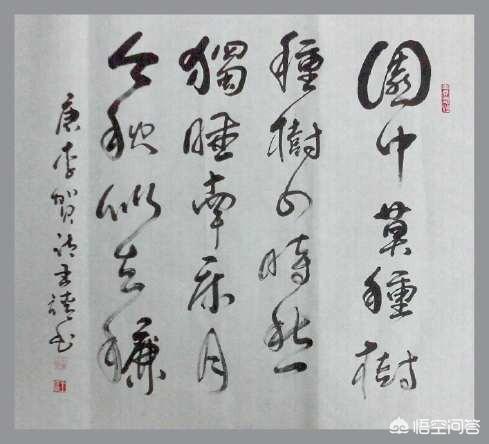 園中莫種樹
種樹四時愁
獨睡南床月
今秋似去穐
唐李賀詩
书
悟空问答